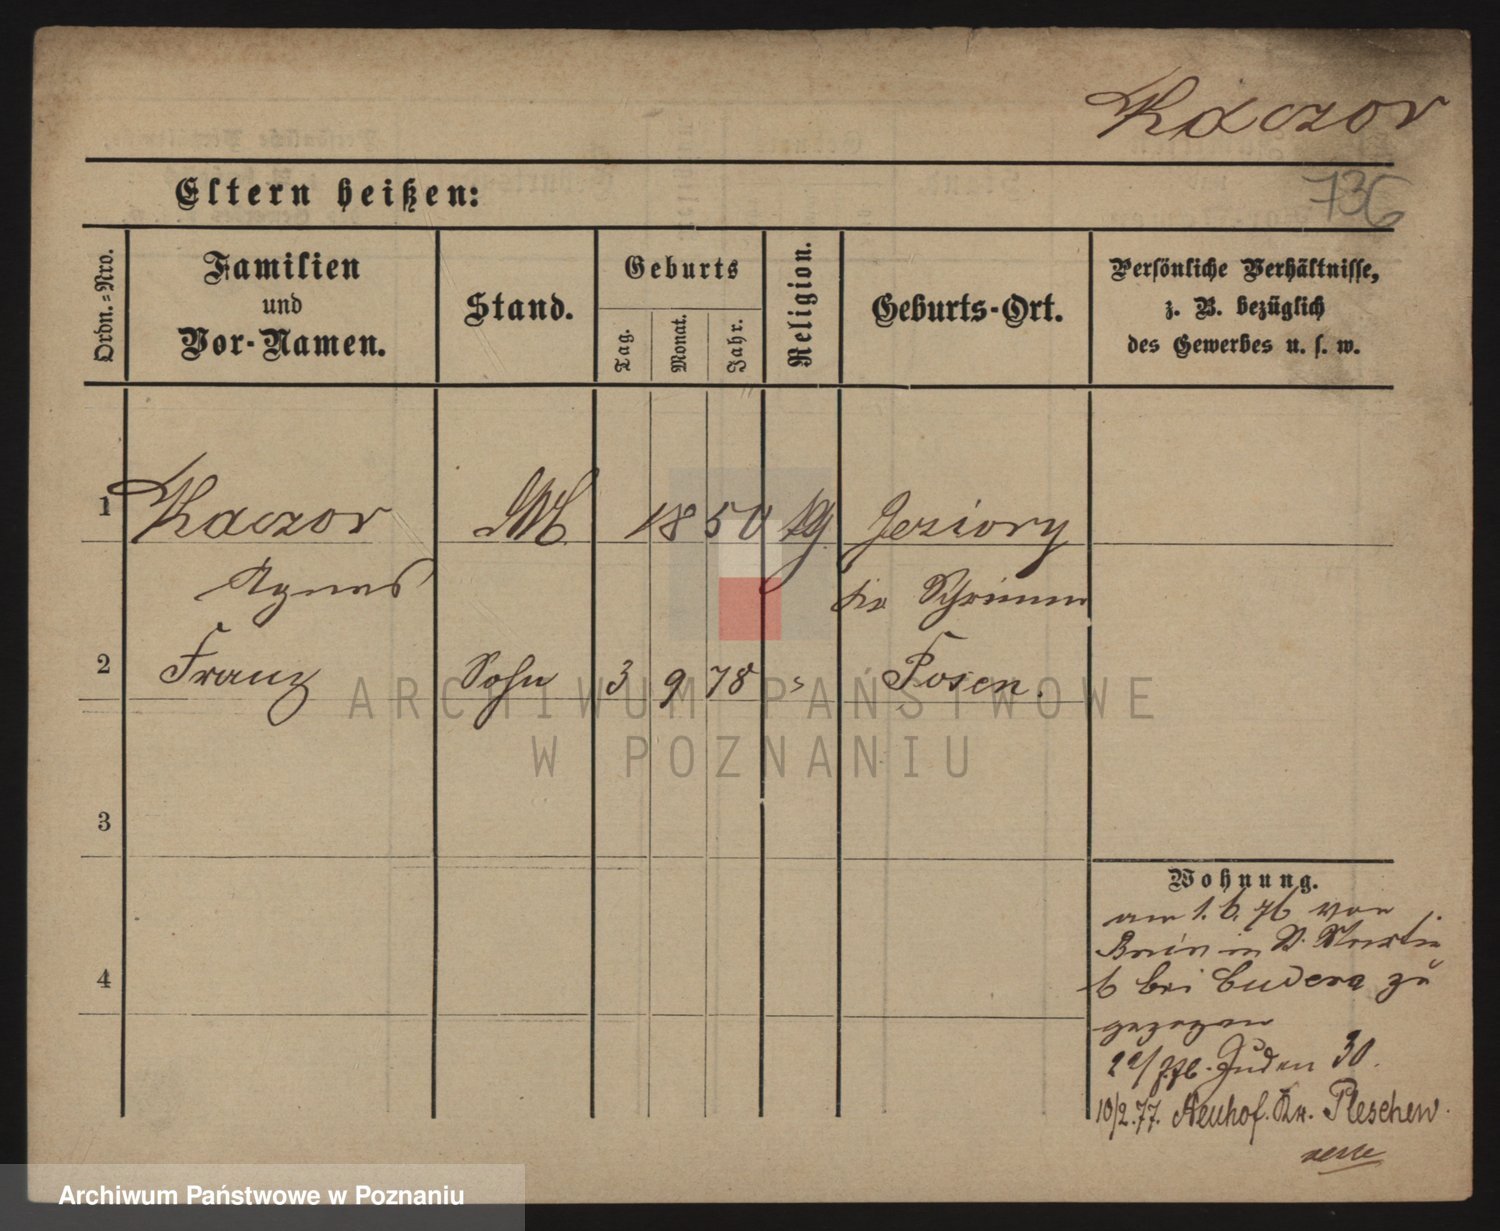 Kaczor
736
Eltern heißen:
Ordn.=Nro.
Familien
und
Vor-Namen.
Stand.
Geburts
Tag.
Monat.
Jahr.
Religion.
Geburts-Ort.
Persönliche Verhältnisse,
z. B. bezüglich
des Gewerbes u. s. w.
1 Kaczor M 1850 kg Jeziory
Agnes Schrimm
2 Franz Sohn 3 9 78 " Posen.
3
4
Wohnung.
am 1. 6. 76 von
in S. Martin
6 bei zu
gezogen
Juden 30.
10/2.77. Neuhof. Kr. Pleschen.
ARCHIWUM PAŃSTWOWE
W POZNANIU
Archiwum Państwowe w Poznaniu